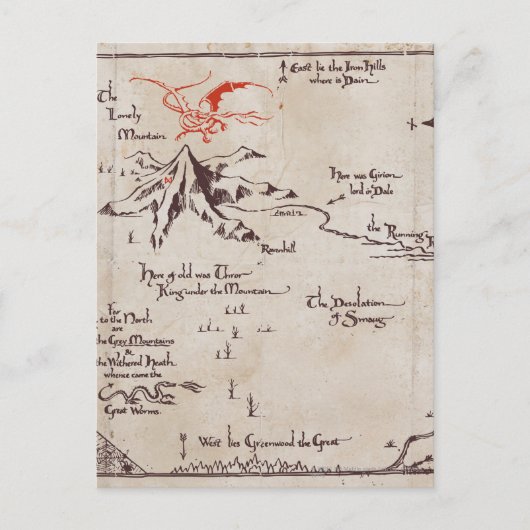 East lie the Iron Hills
where is Dain
The
Lonely
Mountain
Here was Girion
lord in Dale
the Running
Ravenhill
Here of old was Thror
King under the Mountain
The Desolation
of Smaug
Far
to the North
are
the Grey Mountains
&
the Withered Heath
whence came the
Great Worms.
West lies Greenwood the Great